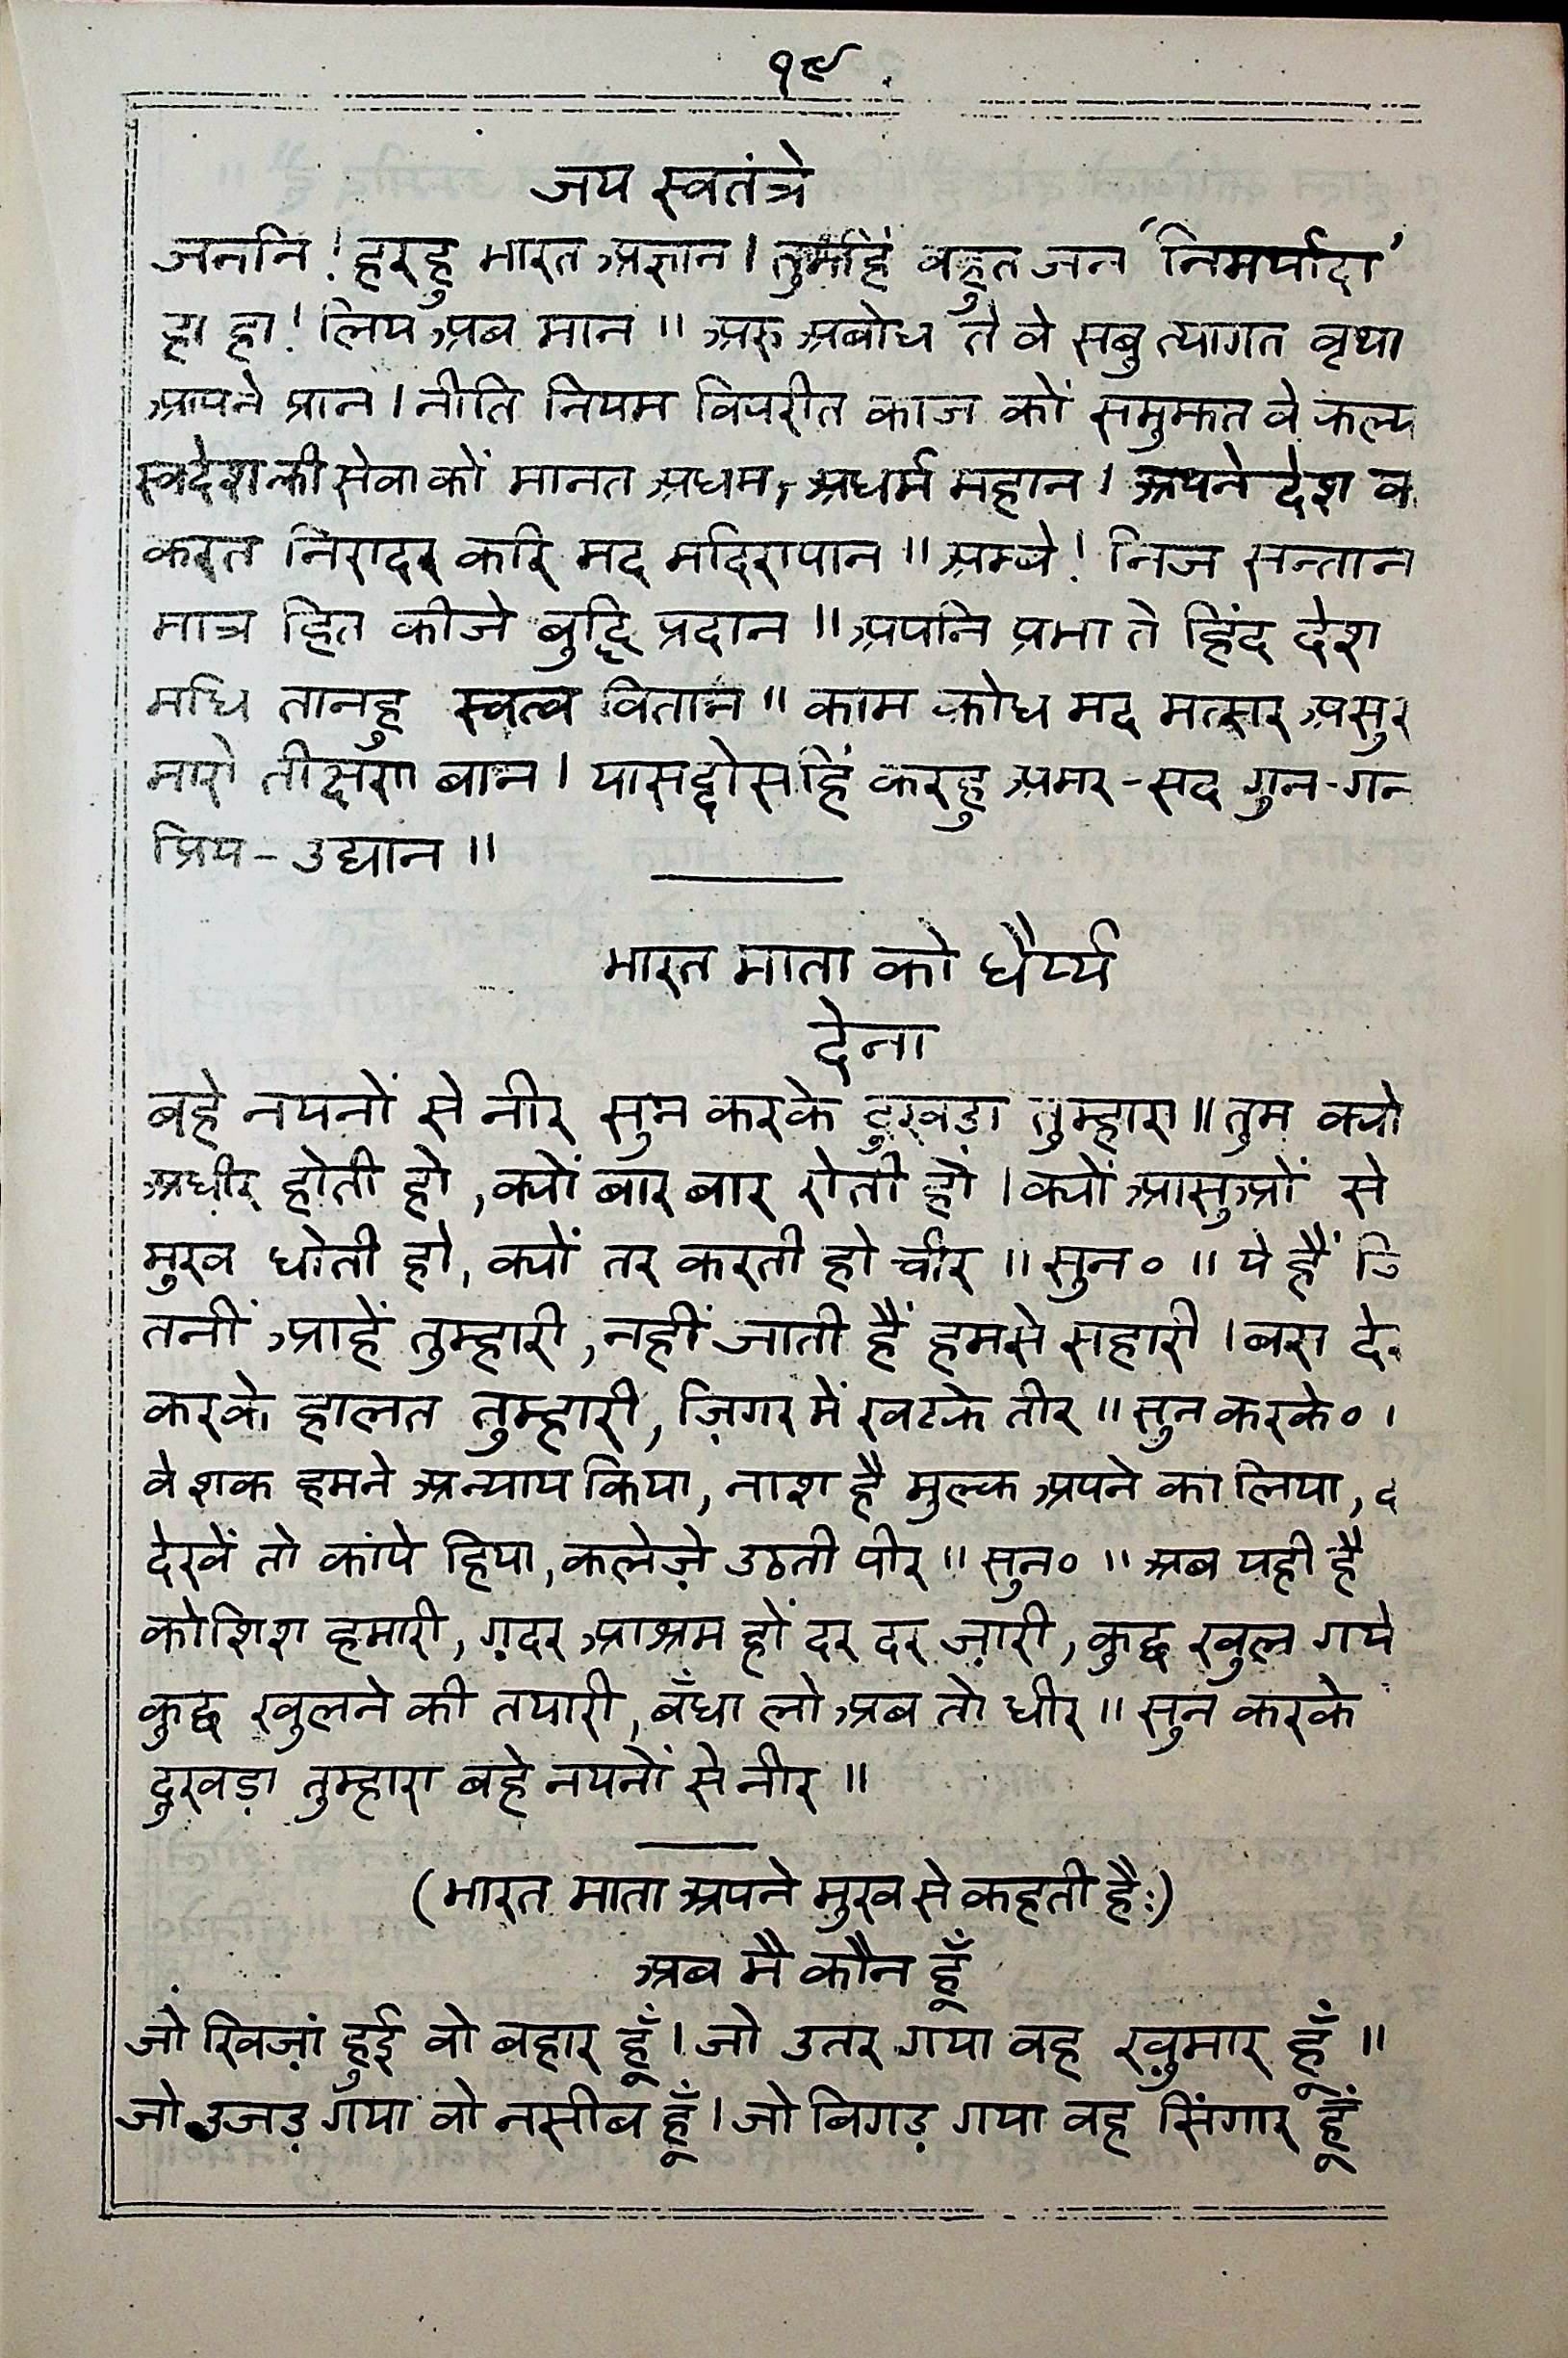 १९
जय स्वतंत्रे
जननि ! हरहु भारत अज्ञान । तुमहिं कहत जन 'निमर्यादा'
हा हा ! लिय अब मान ॥ अरु अबोध ते वे सबु त्यागत वृथा
आपने प्रान । नीति नियम विपरीत काज कों समुझत वे कल्य
स्वदेश की सेवा कों मानत अधम, अधर्म महान । अपने देश क
करत निरादर करि मद मदिरापान ॥ अम्बे ! निज सन्तान
मात्र हित कीजे बुद्धि प्रदान ॥ अपनि प्रभा ते हिंद देश
मधि तानहु स्वत्व वितान ॥ काम क्रोध मद मत्सर असुर
मारो तीक्षण बान । या सद्दोसहिं करहु अमर-सद गुन-गन
प्रिय - उद्यान ॥
भारत माता को धैर्य्य
देना
बहे नयनों से नीर सुन करके दुखड़ा तुम्हारा ॥ तुम क्यों
अधीर होती हो, क्यों बार बार रोती हो । क्यों आसुओं से
मुख धोती हो, क्यों तर करती हो चीर ॥ सुन० ॥ ये हैं
तनीं आहें तुम्हारी, नहीं जाती हैं हमसे सहारी । बस दे
करके हालत तुम्हारी, ज़िगर में खटके तीर ॥ सुन करके० ।
वेशक हमने अन्याय किया, नाश है मुल्क अपने का लिया,
देखें तो कांपे हिया, कलेज़े उठती पीर ॥ सुन० ॥ अब यही है
कोशिश हमारी, ग़दर आश्रम हों दर दर ज़ारी, कुछ खुल गये
कुछ खुलने की तयारी, बँधा लो अब तो धीर ॥ सुन करके
दुखड़ा तुम्हारा बहे नयनों से नीर ॥
(भारत माता अपने मुख से कहती है:)
अब मै कौन हूँ
जो खिज़ां हुई वो बहार हूँ । जो उतर गया वह ख़ुमार हूँ ॥
जो उजड़ गया वो नसीब हूँ । जो बिगड़ गया वह सिंगार हूँ